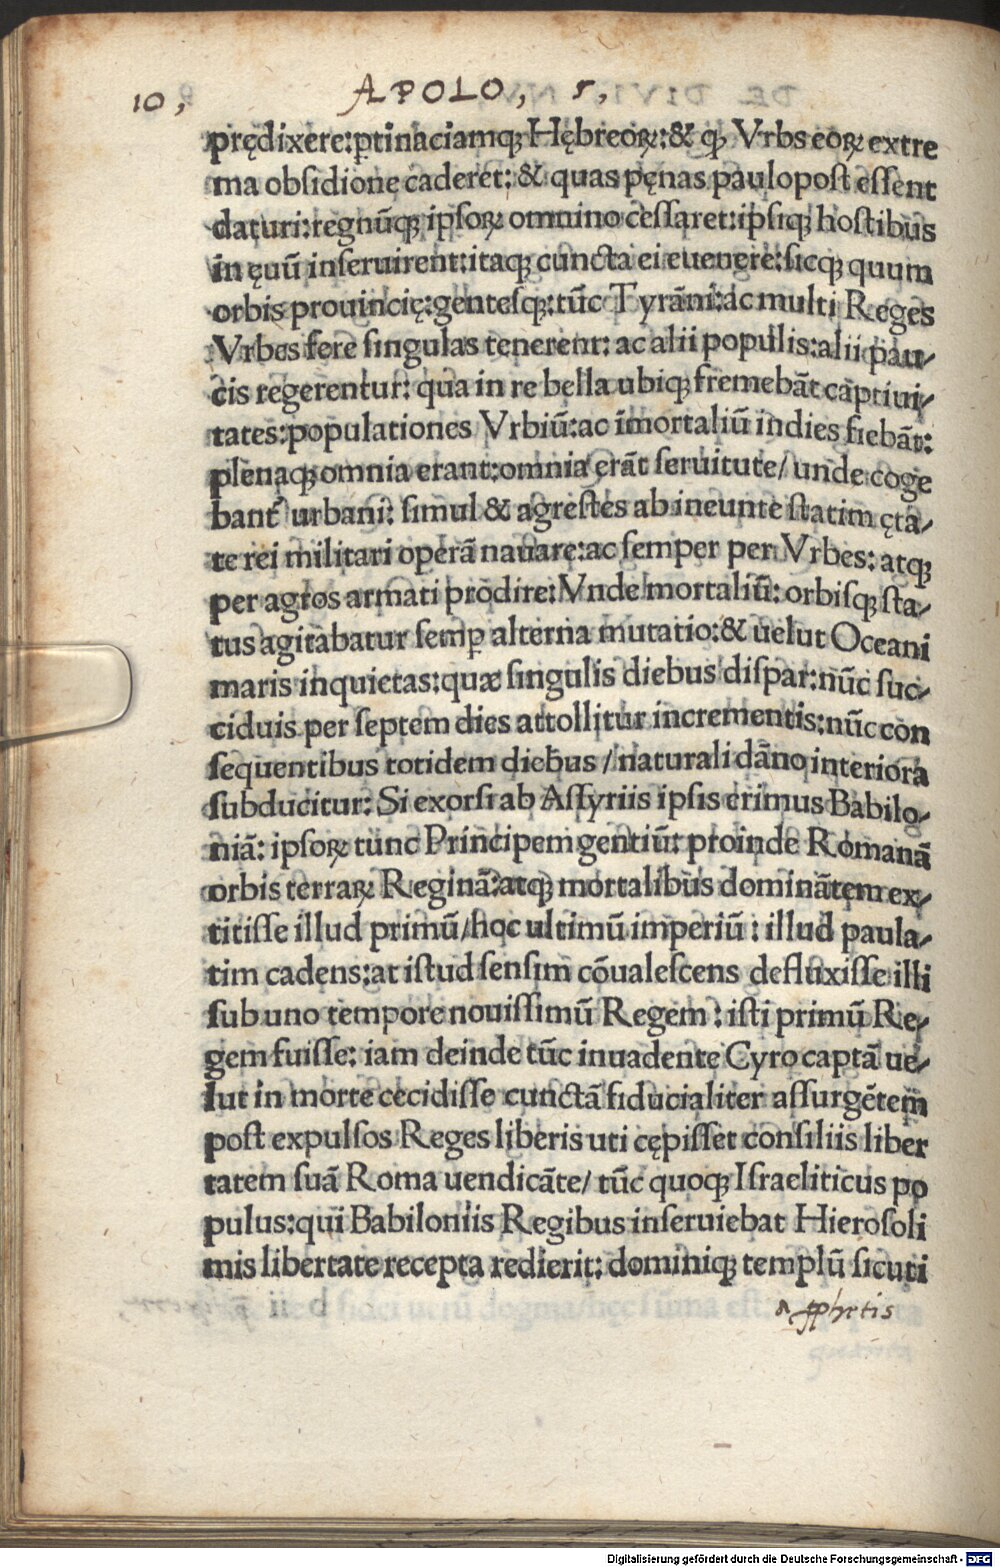 10, APOLO, 5,
prędixere:ꝑtinaciamqꝫ Hębreoꝝ:& ꝙ Vrbs eoꝝ extre
ma obsidione caderet: & quas pęnas paulopost essent
daturi:regnūqꝫ ipsoꝝ omnino cessaret:ipsiqꝫ hostibus
in ęuū inseruirent:itaqꝫ cuncta ei euenere:sicqꝫ quum
orbis prouincię:gentesqꝫ:tūc Tyrāni:ac multi Reges
Vrbes fere singulas tenerent: ac alii populis:alii pau/
cis regerentur: qua in re bella ubiqꝫ fremebāt captiui/
tates:populationes Vrbiū:ac īmortaliū indies fiebāt:
plenaqꝫ omnia erant:omnia erāt seruitute/ unde coge
bant᷑ urbani: simul & agrestes ab ineunte statim ęta/
te rei militari operā nauare:ac semper per Vrbes: atqꝫ
per agros armati prodire: Vnde mortaliū: orbisqꝫ sta/
tus agitabatur semꝑ alterna mutatio:& uelut Oceani
maris inquietas:quæ singulis diebus dispar:nūc suc/
ciduis per septem dies attollitur incrementis:nūc con
sequentibus totidem diebus / naturali dāno interiora
subducitur: Si exorsi ab Assyriis ipsis erimus Babilo/
niā: ipsoꝝ tunc Principem gentiū: proinde Romanā
orbis terraꝝ Reginā:atqꝫ mortalibus dominātem ex/
titisse illud primū/hoc ultimū imperiū : illud paula/
tim cadens:at istud sensim cōualescens defluxisse illi
sub uno tempore nouissimū Regem : isti primū Re/
gem fuisse: iam deinde tūc inuadente Cyro captā ue/
lut in morte cecidisse cunctā fiducialiter assurgētem
post expulsos Reges liberis uti cępisset consiliis liber
tatem suā Roma uendicāte/ tūc quoqꝫ Israeliticus po
pulus:qui Babiloniis Regibus inseruiebat Hierosoli
mis libertate recepta redierit: dominiqꝫ templū sicuti
a ꝓphetis
Digitalisierung gefördert durch die Deutsche Forschungsgemeinschaft - DFG